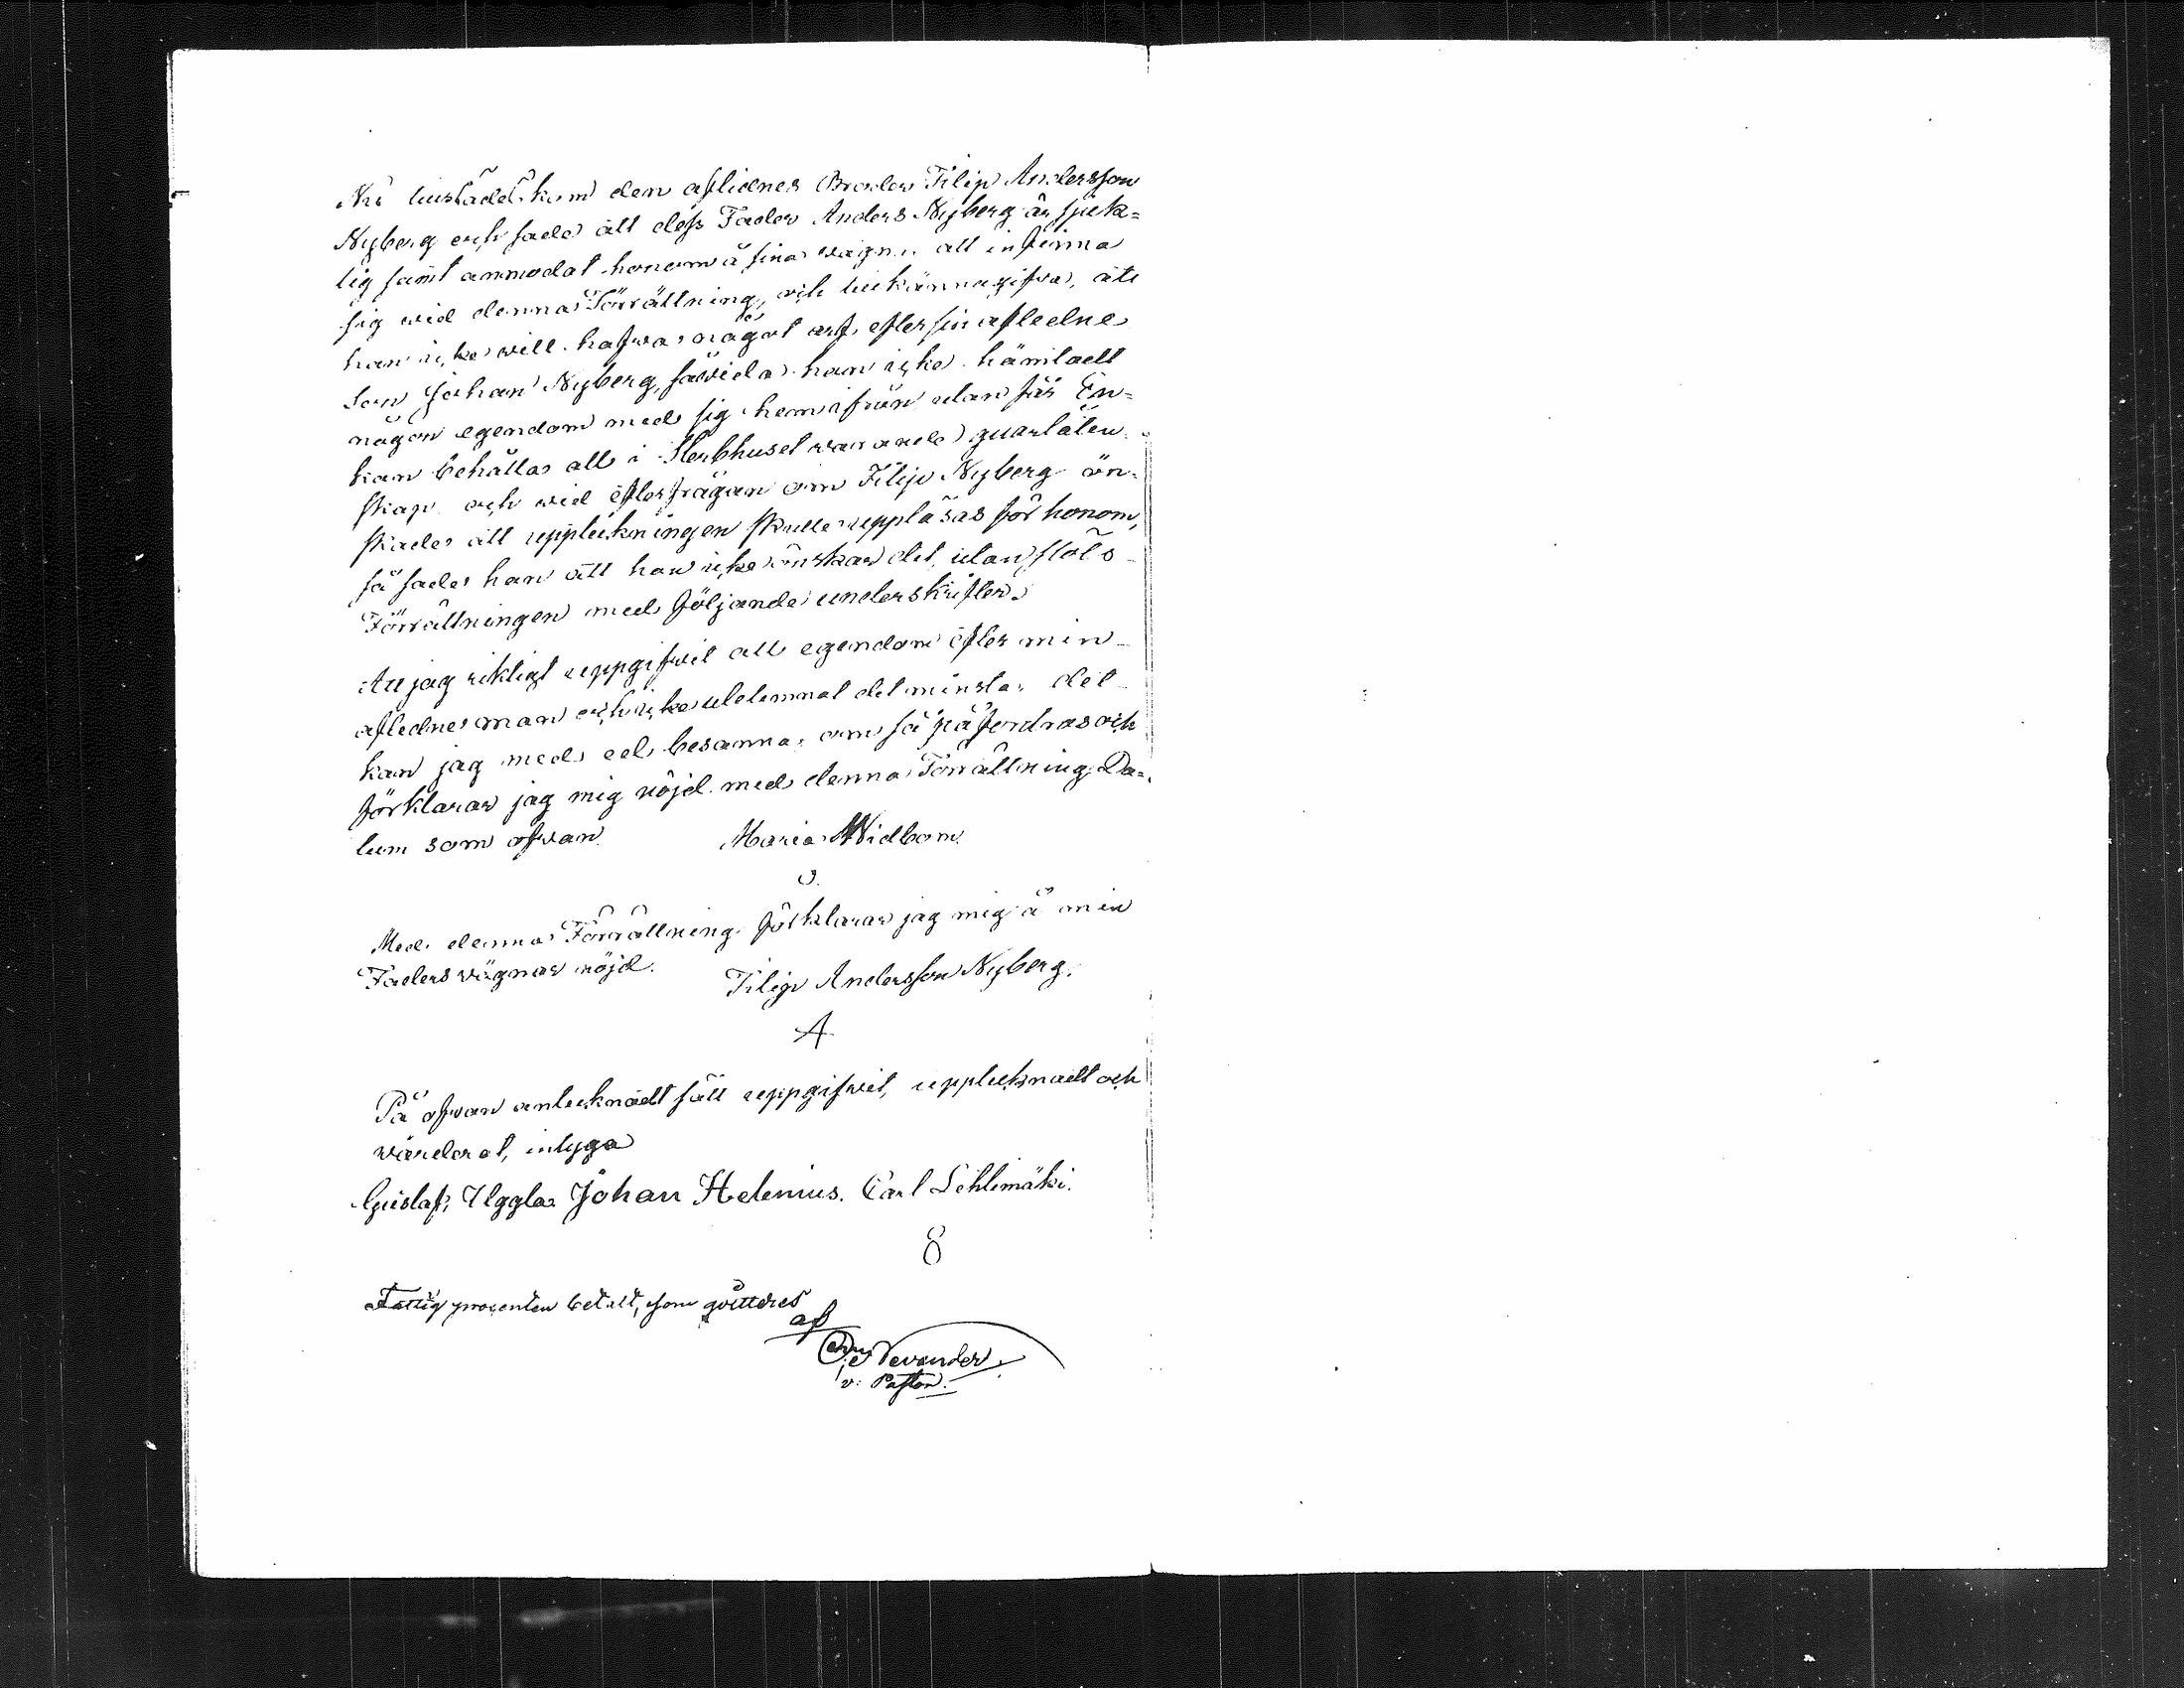 Nu tillstädes kom den aflidnes Broder Filip Andersson
Nyberg och sade att dess Fader Anders Nyberg är sjuk-
lig samt anmodat honom å sina wägnar att infinna
sig wid denna Förrättning, och tillkännagifva, att
han icke will hafwa något arf efter sin afledne
Son Johan Nyberg, såwida han icke hämtadt
någon egendom med sig hemifrån utan får En-
kan behålla allt i Sterbhuset warande quarlåten-
skap och wid efterfrågan om Filip Nyberg ön-
skade att uppteckningen skulle uppläsas för honom,
så sade han att han icke önskar det, utan slöts
Förrättningen med följande underskrifter.
Att jag riktigt uppgifvit all egendom efter min
afledne man och icke utelemnat det minsta, det
kan jag med ed besanna, om så påfordras och
förklarar jag mig nöjd med denna Förrättning. Da-
tum som ofvan. Maria Widbom.
Med denna Förrättning förklarar jag mig å min
Faders wägnar nöjd. Filip Andersson Nyberg.
A
På ofvan antecknadt sätt uppgifvit, upptecknadt och
wärderat, intyga
Gustaf Uggla Johan Helenius. Carl Lehlimäki.
Fattig procenten betalt, som qvitteras
af
Nevander
v. Pastor.